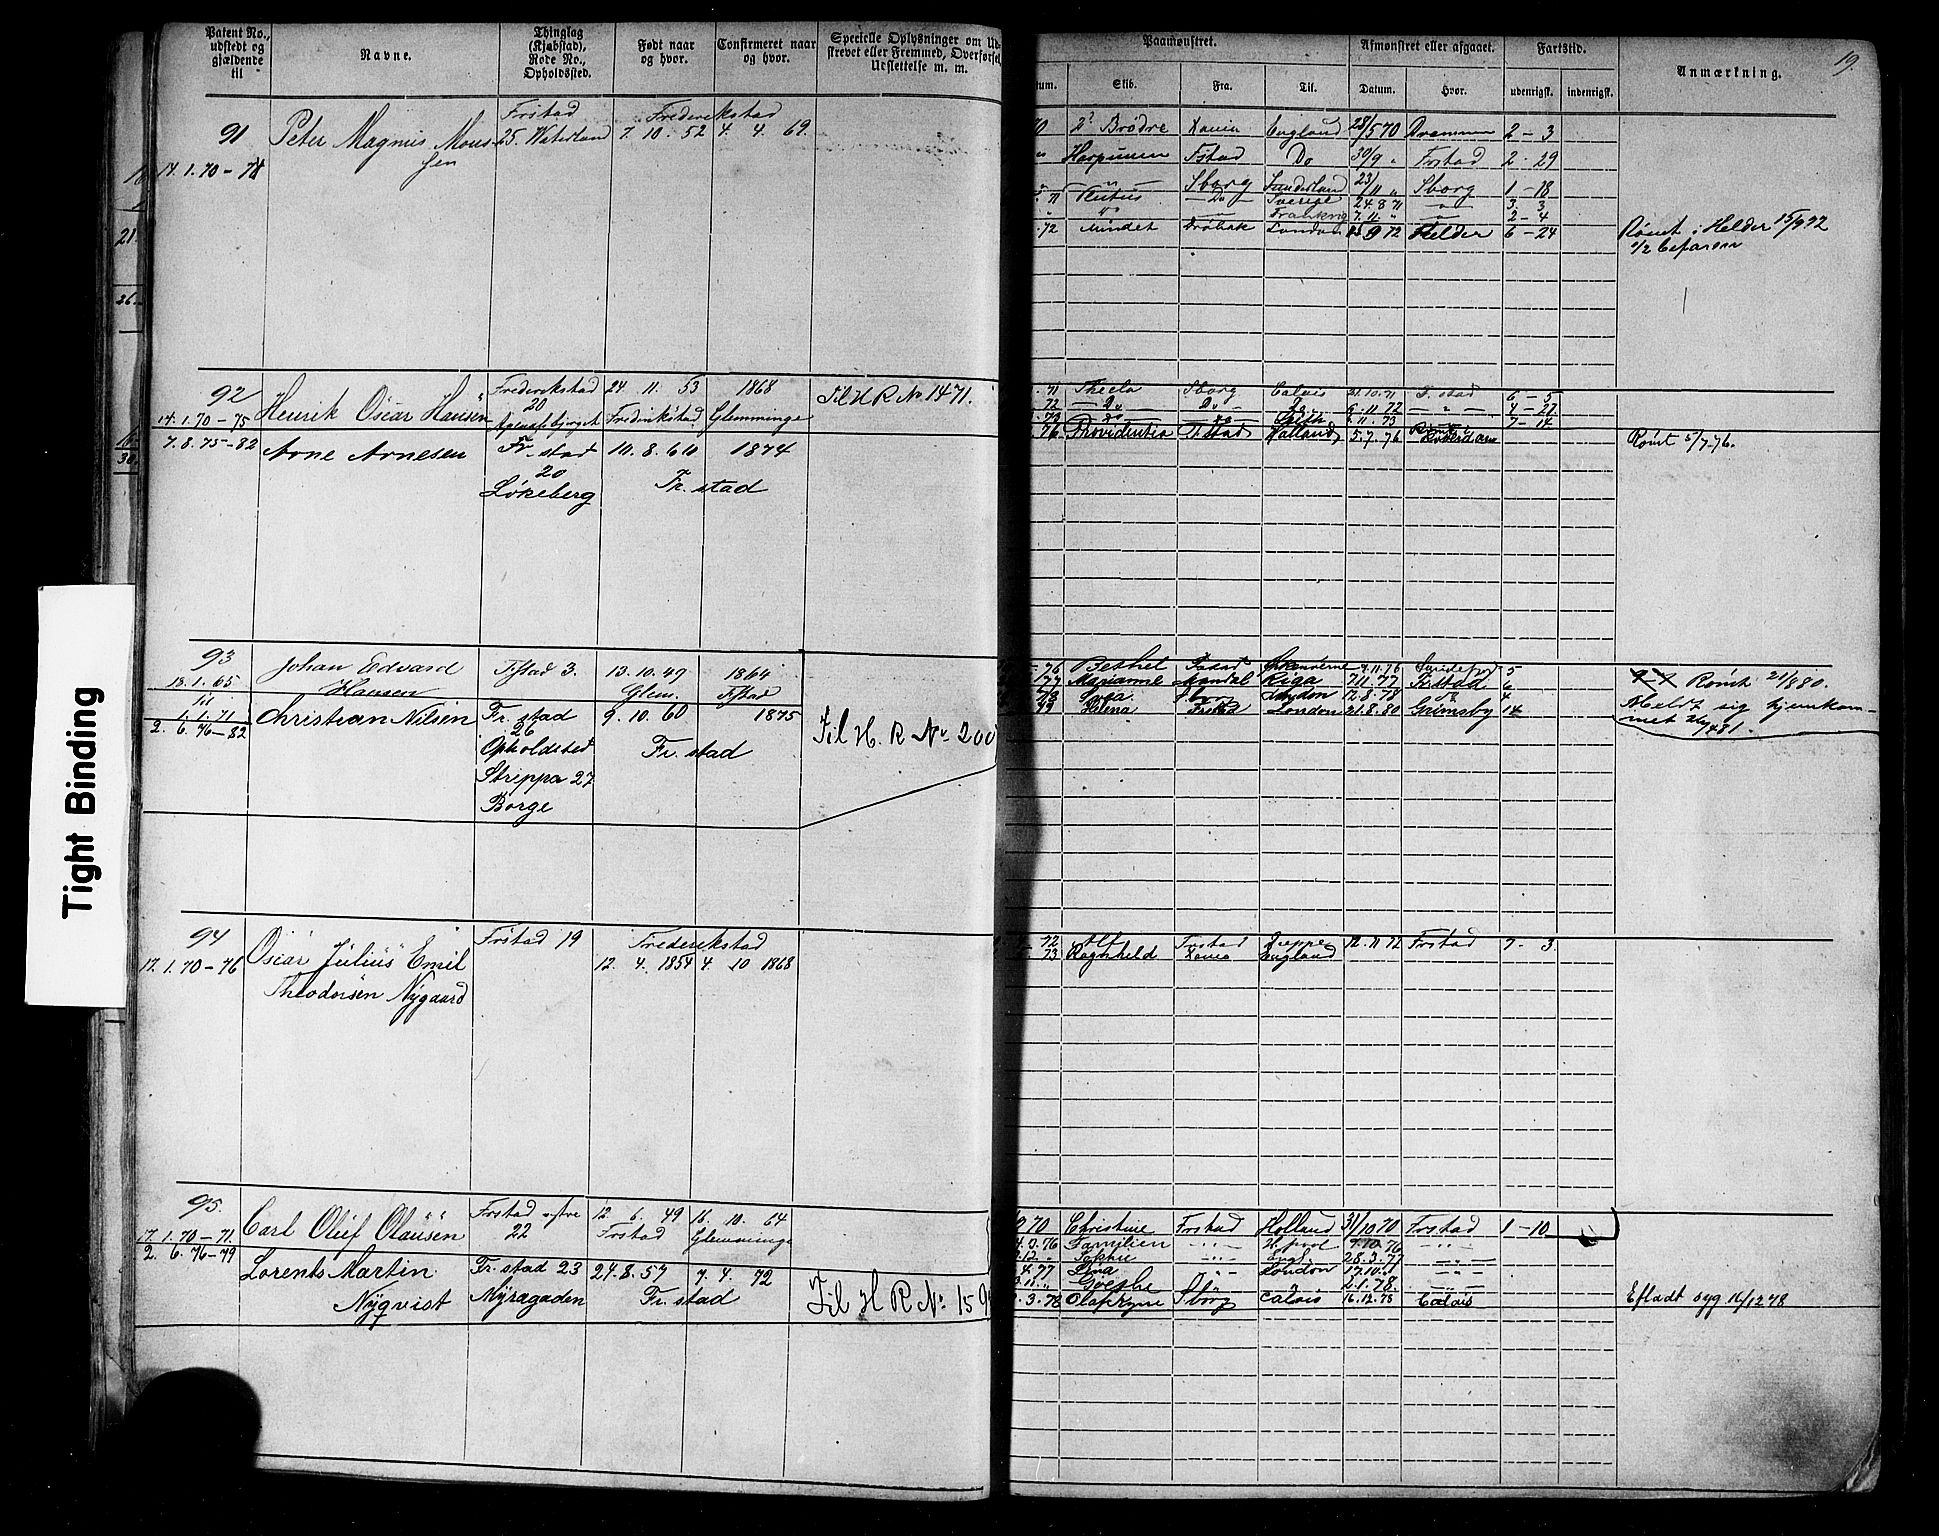 Patent No., udstedt og gjældende til | Navne. | Thinglag (Kjøbstad), Rode No., Opholdssted. | Født naar og hvor. | Confirmeret naar og hvor. | Specielle Oplysninger om Udskrevet eller Fremmed, Overførsel, Udslettelse m. m.
Paamønstret. | Afmønstret eller afgaaet. | Fartstid. | Anmærkning. | 19.
Skib. | Fra. | Til. | Datum. | Hvor. | udenrigsk. | indenrigsk.
91 | Peter Magnus Mons | Frstad | Frederikstad
14.1.70 - 74 | sen | 25. Waterland | 7. 10. 52 | 4. 4. 69.
70 | 2 Brødre | Xania | England | 28/5 70 | Drammen | 2 - 3
" | Harpunen | Fstad | Do | 30/9 " | Frstad | 2 - 29
" | Sborg | Sunderland | 23/11 " | Sborg | 1 - 18
71 | Plutus | Do | Sverige | 24.8 71 | " | 3. 3
" | Frankrig | 7.11. " | 2 - 4
72 | Mindet | Drøbak | London | 15 9 72 | Helder | 6 - 24 | Rømt i Helder 15/9 72
92 | Henrik Oscar Hansen | Frederikstad | 24. 11. 53 | 1868 | Til H R No 1471.
14.1.70 - 75 | 20 | Frederikstad | Glemminge
71 | Thecla | Sborg | Calais | 21.10.71 | F.stad | 6 - 5
72 | Do | Do | 6.11.72 | " | 4 - 27
73 | Do | Do | 11.73 | 7 - 14
7.8.75-82 | Arne Arnesen | Fr. stad | 10. 8. 60 | 1874
20
Løkeberg | Fr. stad
76. | Providentia | Frstad | Holland | 5.7.76 | Rotterdam | Rømt 5/7.76.
93 | Johan Edvard | Fstad 3. | 13. 10. 49 | 1864
18.1.65 | Hansen | Glem. | Fstad
til
1.1.71
Christian Nilsen | Fr. stad | 9. 10. 60 | 1875 | Til H. R No. 200
2. 6.76-82 | 26
Opholdsted | Fr. stad
Strippa 27
Borge
76 | Bethel | 9.11.76 | 5
77 | Marianne | Mandal | Riga | 7.11.77 | Frstad | 6 | Rømt 21/8 80.
78 | Svea | Sborg | London | 12.8.78 | 4 | Meldt sig hjemkom
79 | Helena | Frstad | London | 21.8.80 | Grimsby | 14 | met 26/4 81.
94 | Oscar Julius Emil | Frstad 19 | Frederikstad
17.1.70-76 | Theodorsen Nygaard | 12. 4. 1854 | 4. 10 1868
72 | Alf | Frstad | Dieppe | 12.11 72 | Frstad | 7 - 3
73 | Ragnhild | Xania | England
95. | Carl Oluf Olausen | Frstad østre | 12. 6. 49 | 16. 10. 64
17.1.70-71. | 22 | Frstad | Glemminge
70 | Christine | Frstad | Holland | 31/10 70 | Frstad | 1 - 10
2. 6.76-79 | Lorents Martin | Fr. stad 23 | 24.8.57 | 7. 4. 72 | Til H R No. 15
Nyqvist | Myragaden | Fr. stad
76 | Familien | " | 9.10.76 | "
12. " | Sophie | " | Engl. | 28.3.77 | "
4.77 | Lina | " | London | 17.10. " | "
Goethe | " | 2.1.78. | "
3.78 | Olaf Kyrre | Sborg | Calais | 16.12.78 | Calais | Efladt syg 16/12 78
Tight Binding